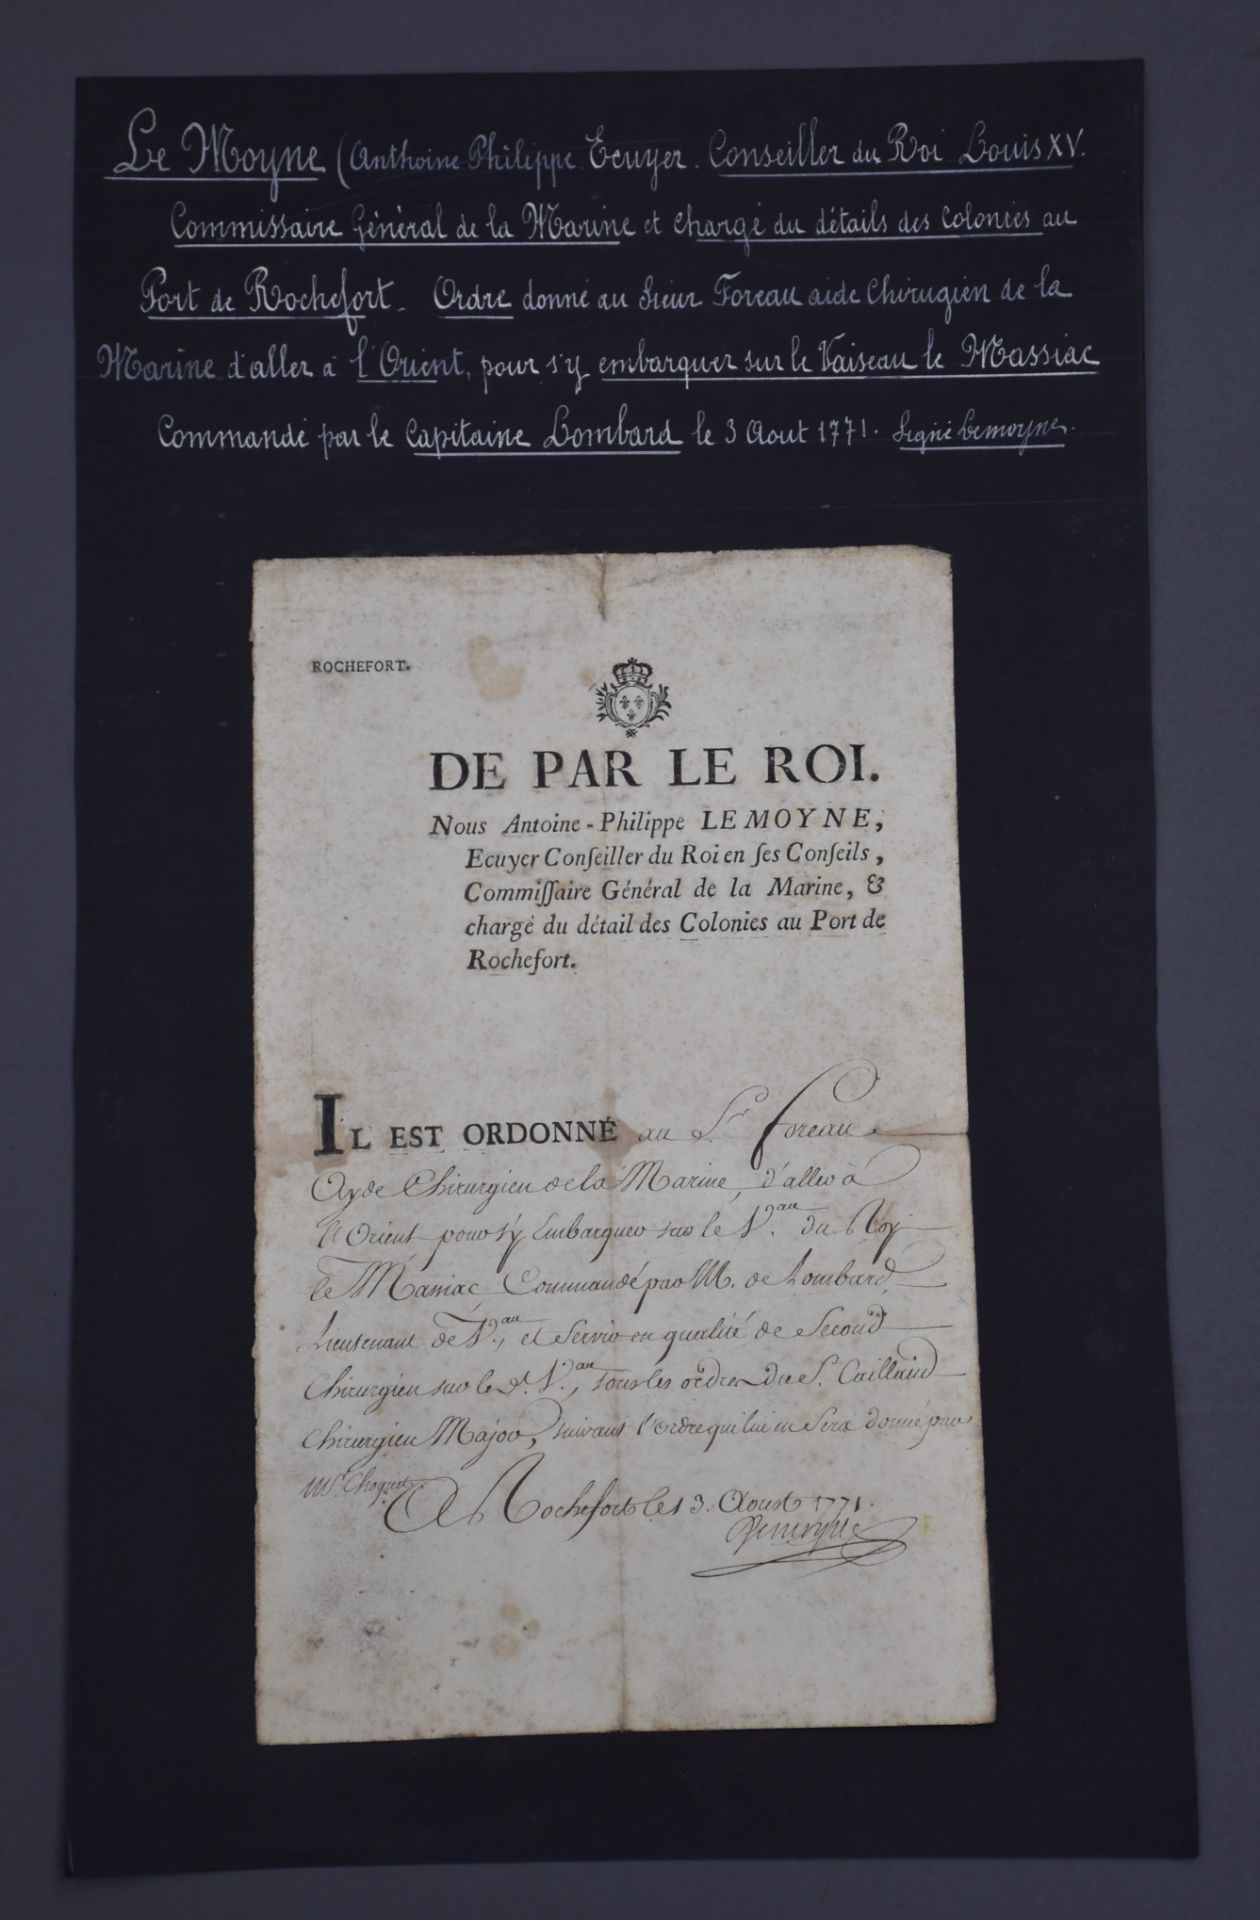 Le Moyne (Anthoine Philippe Ecuyer. Conseiller du Roi Louis XV.
Commissaire Général de la Marine et chargé du détails des Colonies au
Port de Rochefort. Ordre donné au Sieur Foreau aide Chirugien de la
Marine d'aller à l'Orient, pour s'y embarquer sur le Vaiseau le Massiac
Commandé par le Capitaine Lombard le 3 Aout 1771. Signé Lemoyne.
ROCHEFORT.
DE PAR LE ROI.
Nous Antoine-Philippe LEMOYNE,
Ecuyer Conſeiller du Roi en ſes Conſeils,
Commiſſaire Général de la Marine, &
chargé du détail des Colonies au Port de
Rochefort.
IL EST ORDONNÉ au S.r Foreau
Ayde Chirurgien de la Marine, d'aller à
l'Orient pour s'y Embarquer sur le V.au du Roy
le Massiac Commandé par M. de Lombard
Lieutenant de V.au, et Servir en qualité de Second
Chirurgien sur le d. V.au, sous les ordres du S. Caillaud
Chirurgien Major, suivant l'ordre qui lui en Sera donné par
Mr. Choquet
A Rochefort le 13. Aoust 1771.
Lemoyne